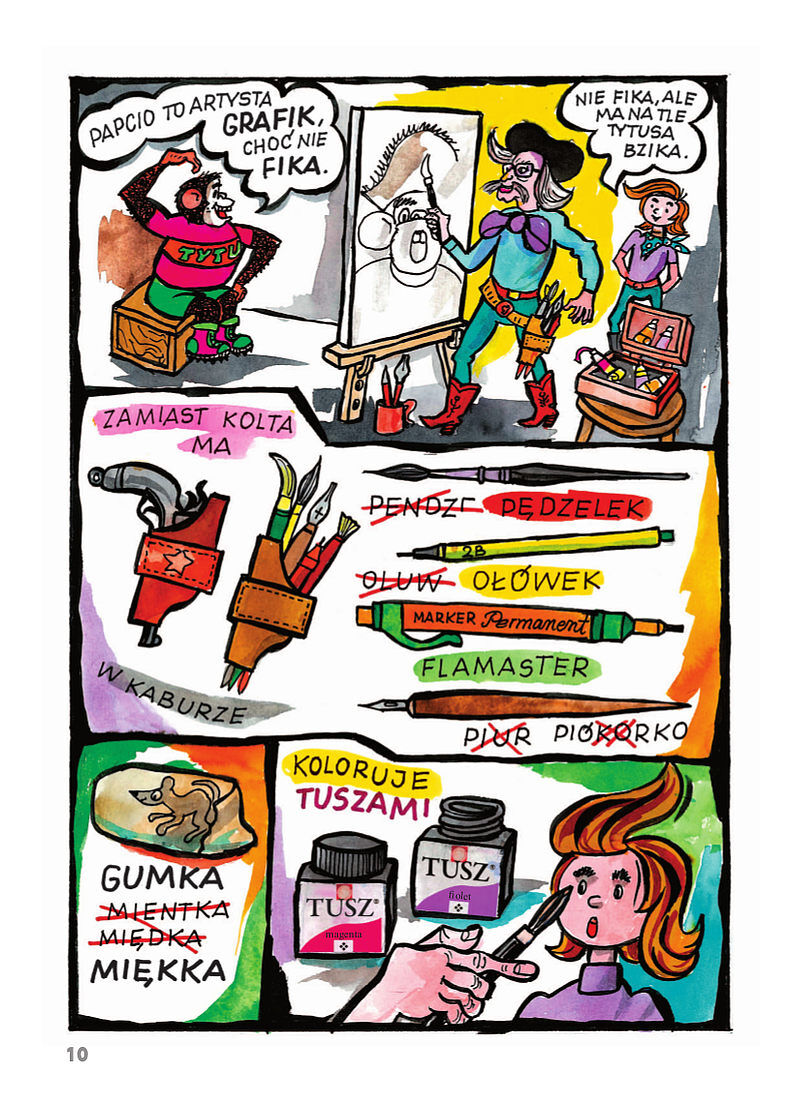 PAPCIO TO ARTYSTA
GRAFIK,
CHOĆ NIE
FIKA.
NIE FIKA, ALE
MA NA TLE
TYTUSA
BZIKA.
TYTU
ZAMIAST KOLTA
MA
W KABURZE
PENDZL PĘDZELEK
2B
OLUW OŁÓWEK
MARKER Permanent
FLAMASTER
PIUR PIÓKÓRKO
GUMKA
MIENTKA
MIĘDKA
MIĘKKA
KOLORUJE
TUSZAMI
TUSZ®
magenta
TUSZ®
fiolet
10